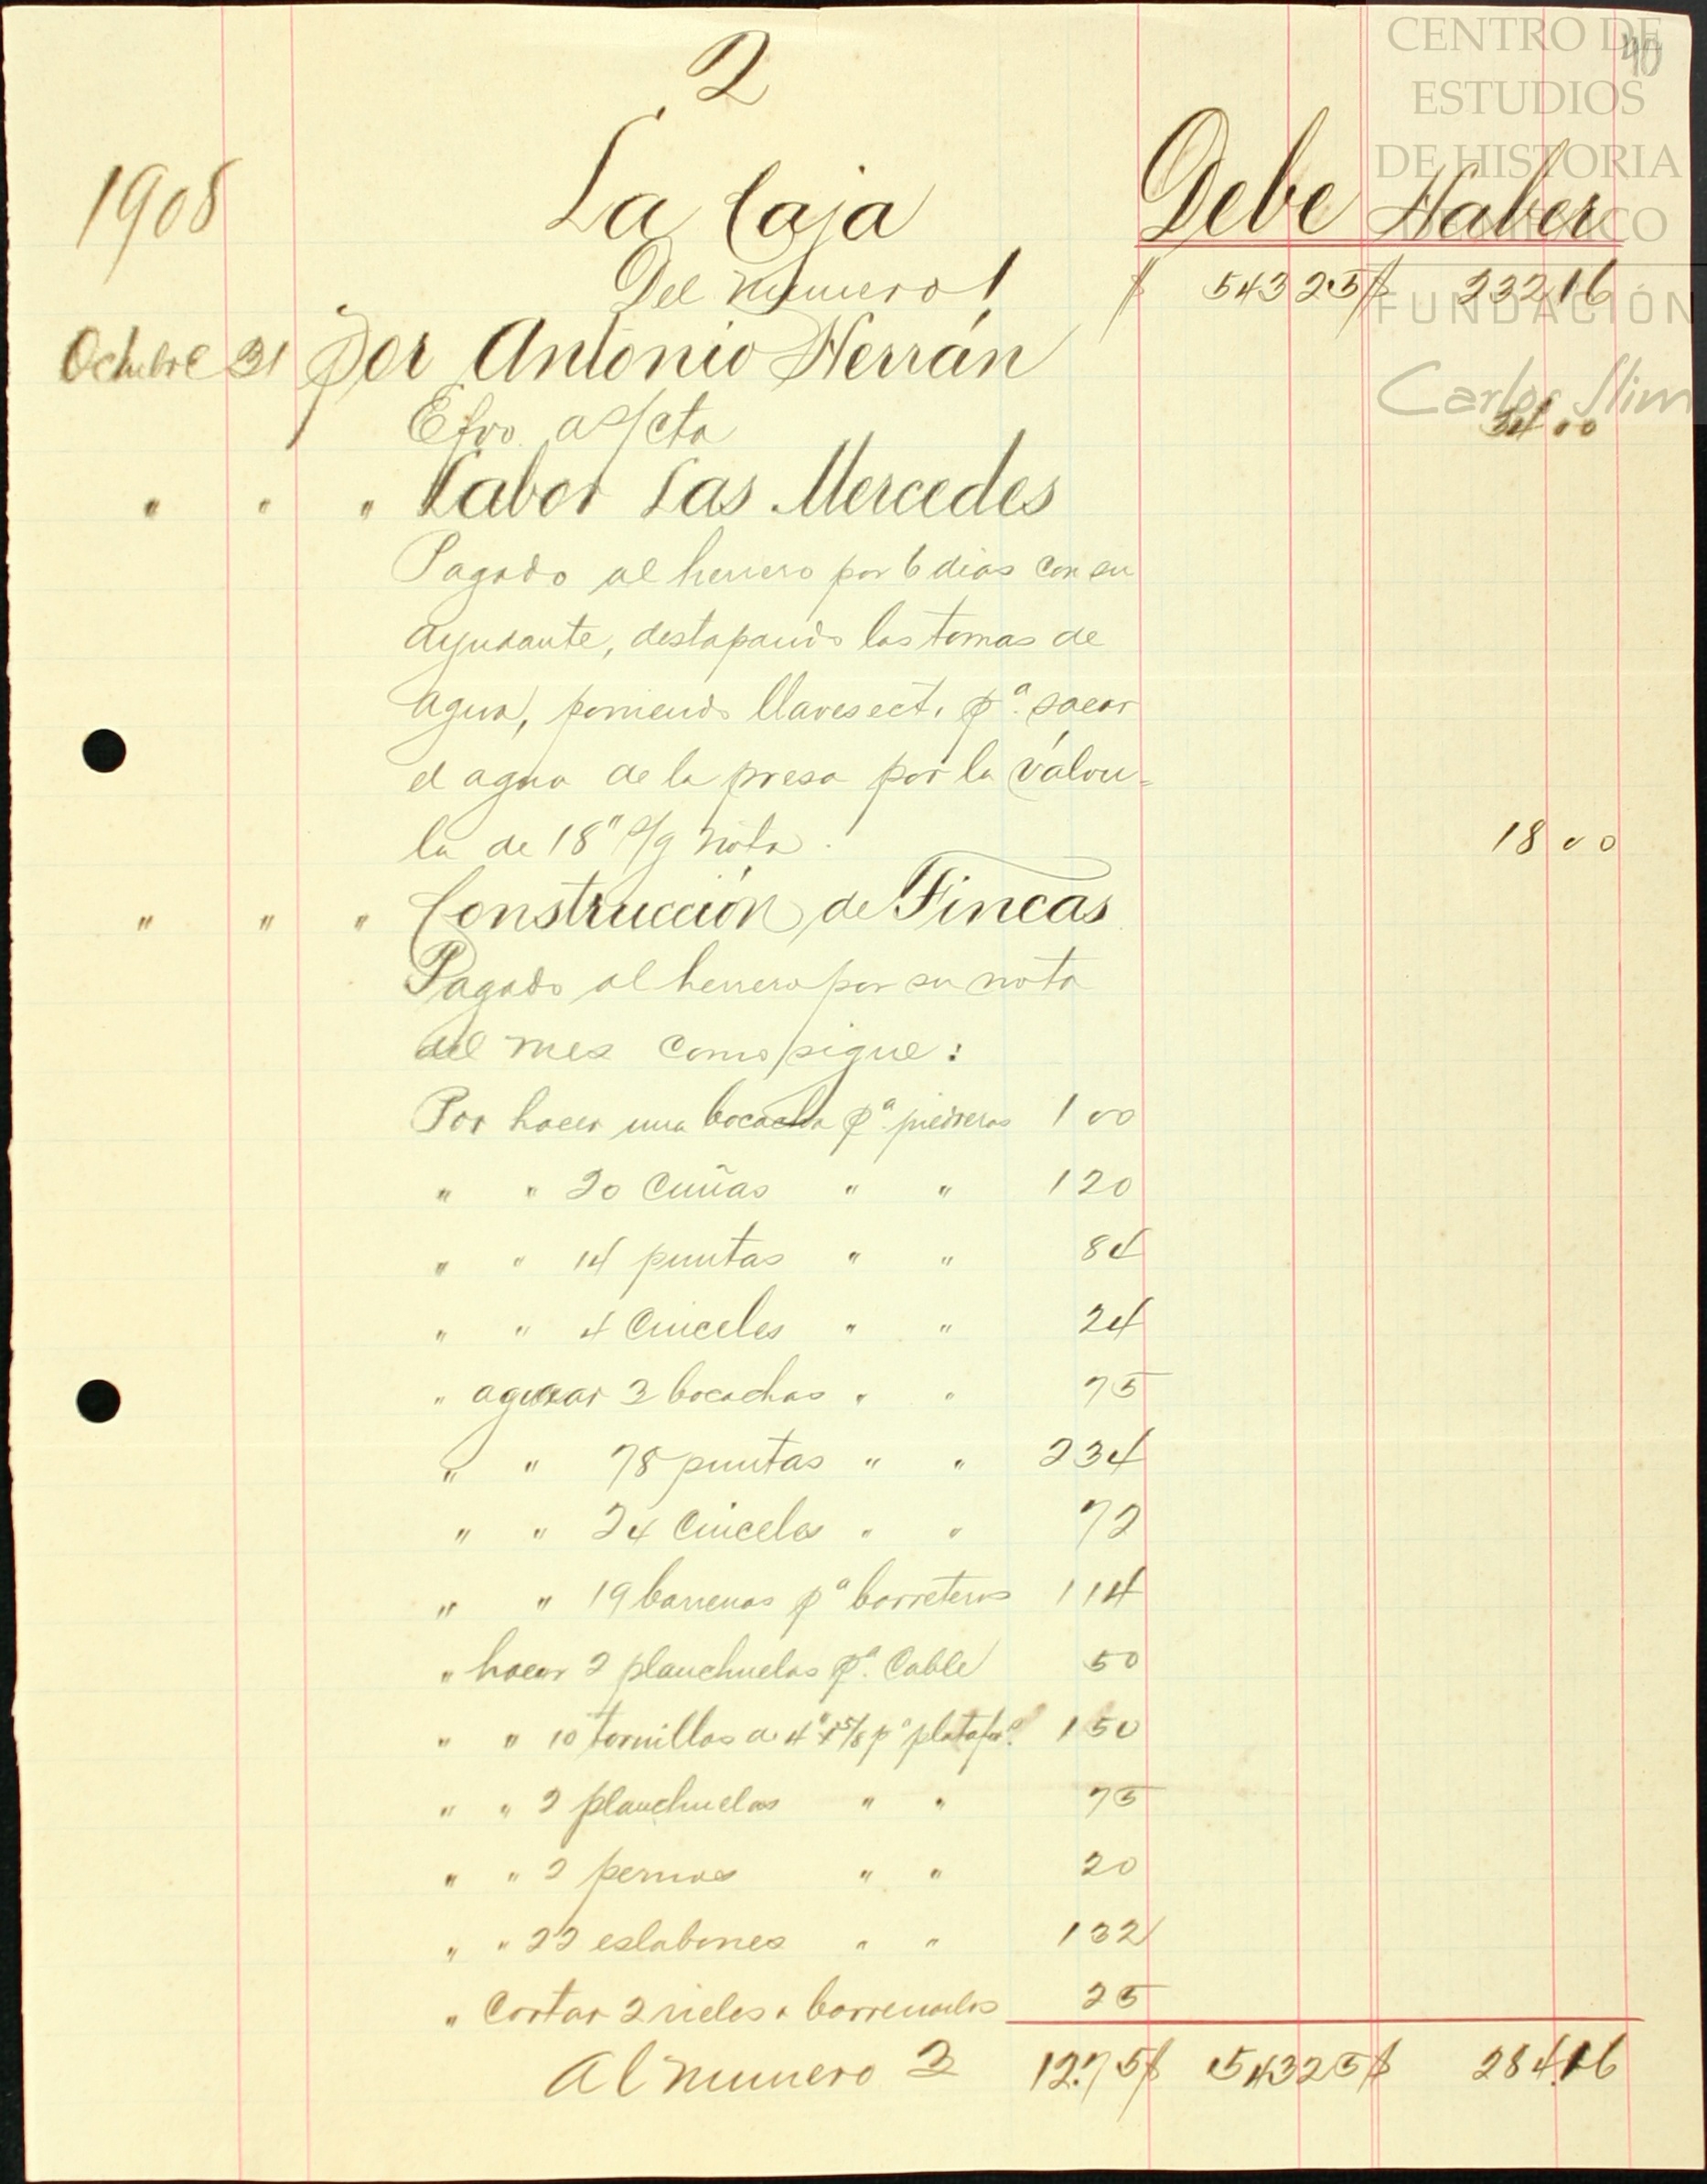 CENTRO DE
ESTUDIOS
DE HISTORIA
DE MÉXICO
FUNDACIÓN
Carlos Slim
40
2
1908 La Caja Debe Haber
Del número 1 $ 543 25 $ 232 16
Octubre 31 Por Antonio Herrán
Efvo. a s/cta 34 00
" " " Labor Las Mercedes
Pagado al herrero por 6 dias con su
ayudante, destapando las tomas de
agua, poniendo llaves ect. pª. sacar
el agua de la presa por la válvu-
la de 18" s/g nota. 18 00
" " " Construcción de Fincas
Pagado al herrero por su nota
del mes como sigue:
Por hacer una bocacha pª. piedreros 1 00
" " 20 cuñas " " 1 20
" " 14 puntas " " 84
" " 4 cinceles " " 24
" aguzar 3 bocachas " " 75
" " 78 puntas " " 2 34
" " 24 cinceles " " 72
" " 19 barrenas pª barreteros 1 14
" hacer 2 planchuelas pª. Cable 50
" " 10 tornillos de 4" x 5/8 pª platafª. 1 50
" " 2 planchuelas " " 75
" " 2 pernos " " 20
" " 22 eslabones " " 1 32
" Cortar 2 rieles y barrenarlos 25
Al numero 3 12.75 $ 543 25 $ 284.16